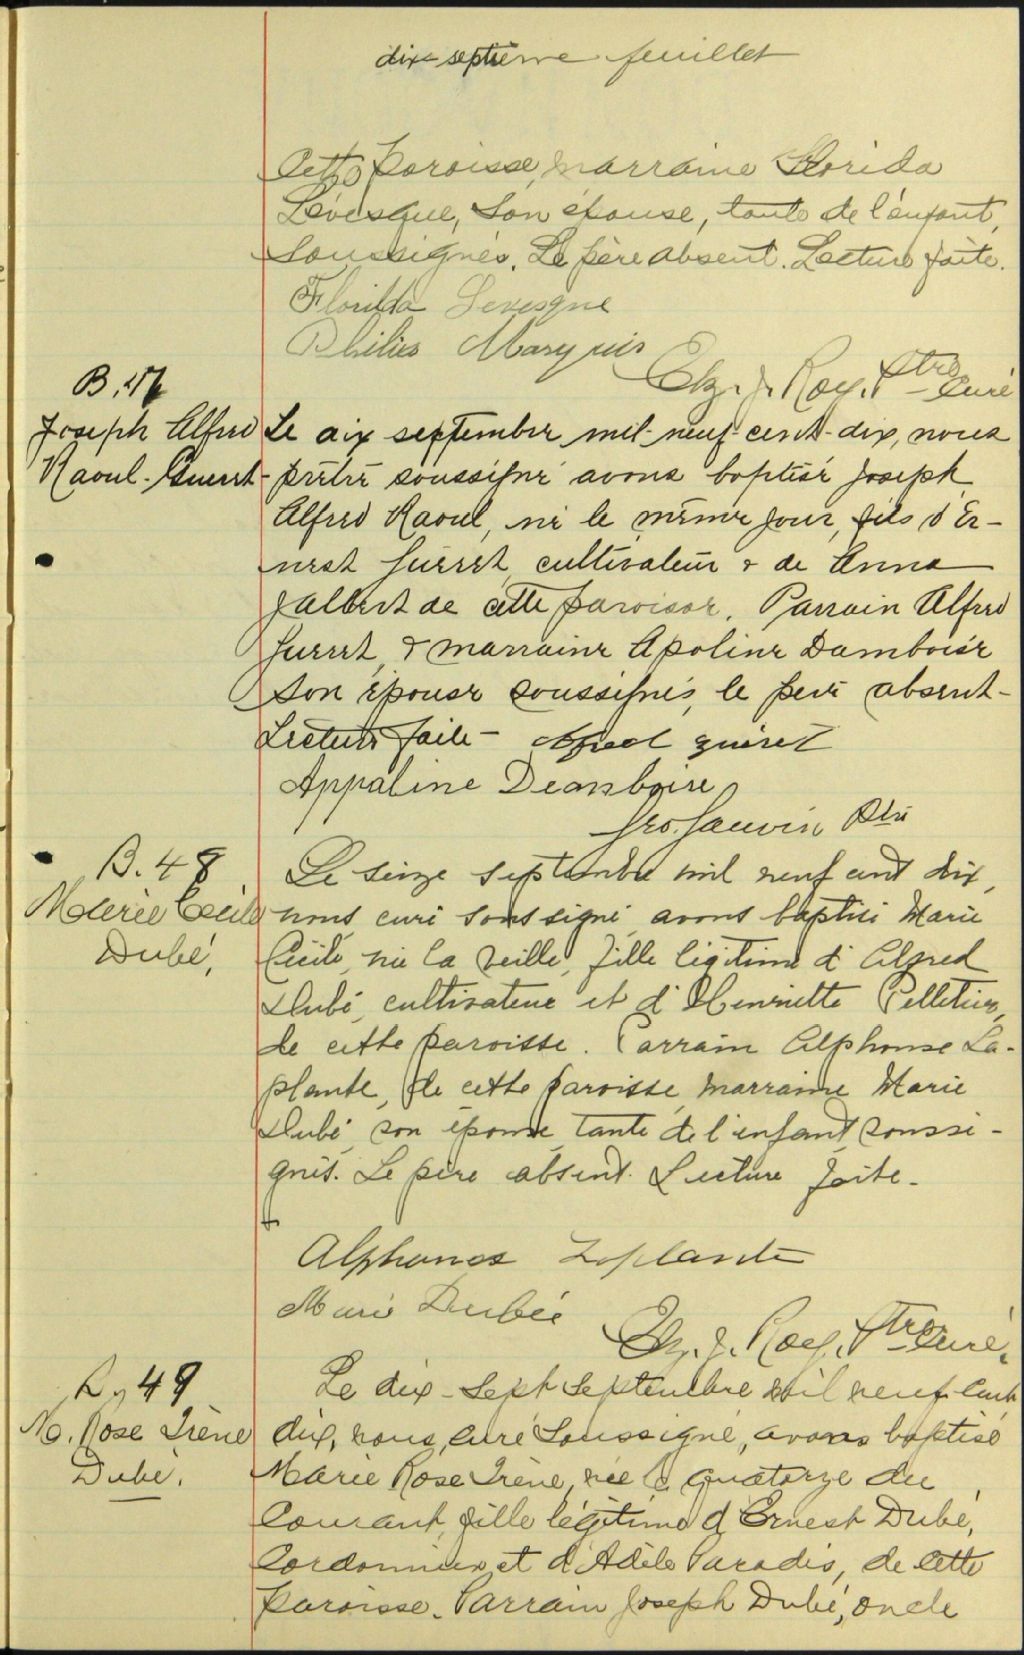 dix-septième feuillet
cette paroisse, marraine Florida
Lévesque, son épouse, tante de l'enfant,
soussignés. Le père absent. Lecture faite.
Florida Levesque
Philias Marquis
Elz. J. Roy, Ptre Curé
B. 47
Joseph Alfred
Raoul Gueret
Le dix septembre mil-neuf-cent-dix, nous
prêtre soussigné avons baptisé Joseph
Alfred Raoul, né le même jour, fils d'Er-
nest Guerret, cultivateur & de Anna
Jalbert de cette paroisse. Parrain Alfred
Guerret, & marraine Apoline Damboise
son épouse soussignés, le père absent-
Lecture faite- Alfred guéret
Appaline Deamboise
Geo. Gauvin Ptre
B. 48
Marie Cécile
Dubé,
Le seize septembre mil neuf cent dix,
nous, curé soussigné, avons baptisé Marie
Cécile, née la veille, fille légitime d'Alfred
Dubé, cultivateur et d'Henriette Pelletier,
de cette paroisse. Parrain Alphonse La-
plante, de cette paroisse, marraine Marie
Dubé, son épouse, tante de l'enfant, soussi-
gnés. Le père absent. Lecture faite-
Alphonse Laplante
Marie Dubée
Elz. J. Roy, Ptre Curé.
B. 49
M. Rose Irène
Dubé.
Le dix-sept septembre mil neuf cent
dix, nous, curé soussigné, avons baptisé
Marie Rose Irène, née le quatorze du
courant, fille légitime d'Ernest Dubé,
cordonnier et d'Adèle Paradis, de cette
paroisse. Parrain Joseph Dubé, oncle